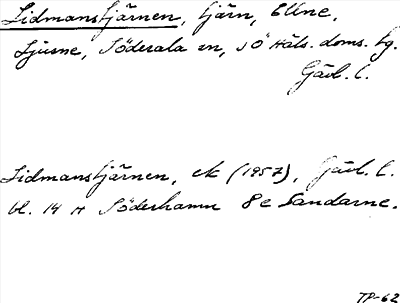 Lidmanstjärnen, tjärn, Ellne,
Ljusne, Söderala sn, SÖ Häls. doms. tg.
Gävl. l.
Lidmanstjärnen, ek (1957), Gävl. l.
bl. 14 H Söderhamn 8e Sandarne.
TP-62